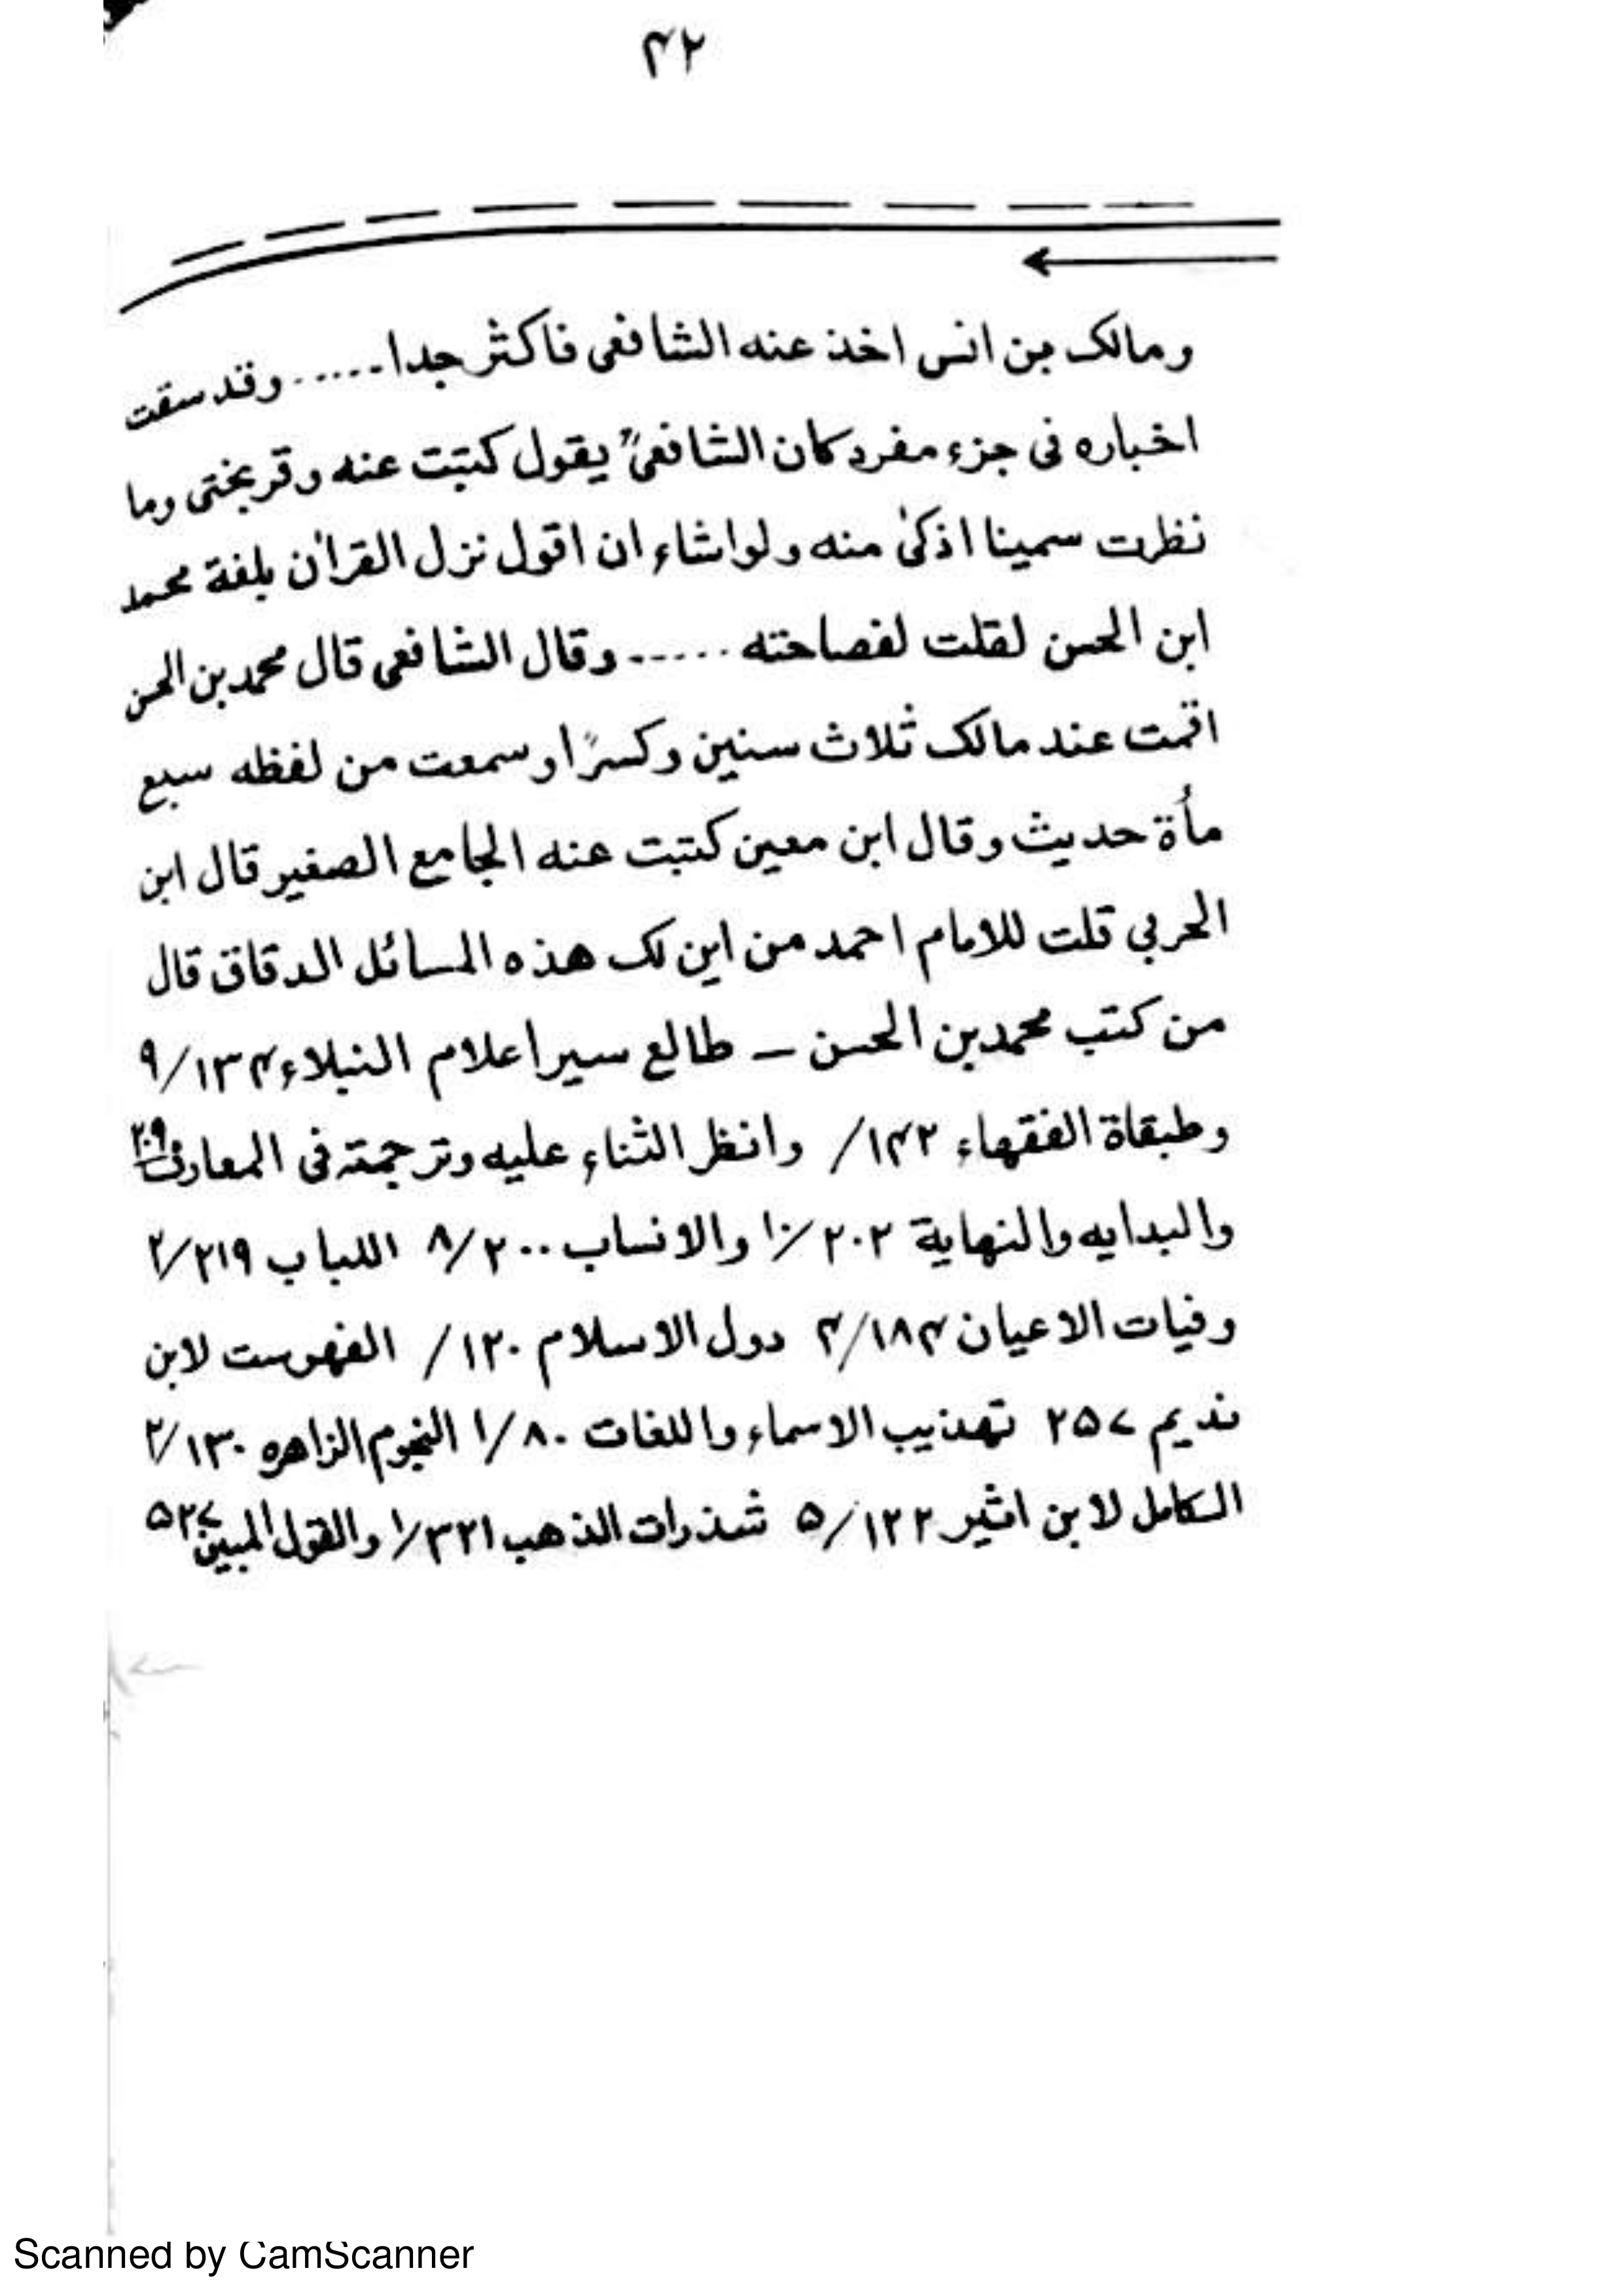 ۴۲
ومالک بن انس اخذ عنه الشافعی فاکثر جدا ..... وقد سقت
اخباره فی جزء مفرد کان الشافعیؒ یقول کتبت عنه وقر بختی وما
نظرت سمینا اذکیٰ منه ولو اشاء ان اقول نزل القراٰن بلغة محمد
ابن الحسن لقلت لفصاحته ...... وقال الشافعی قال محمد بن الحسن
اقمت عند مالک ثلاث سنین وکسرًا وسمعت من لفظه سبع
مأة حدیث وقال ابن معین کتبت عنه الجامع الصغیر قال ابن
الحربی قلت للامام احمد من این لک هذه المسائل الدقاق قال
من کتب محمد بن الحسن – طالع سیر اعلام النبلاء ۹/۱۳۴
وطبقاة الفقهاء ۱۴۲/ وانظر الثناء علیه وترجمته فی المعارف ۲۰۹
والبدایه والنهایة ۱۰/۲۰۲ والانساب ۸/۲۰۰ اللباب ۲/۲۱۹
وفیات الاعیان ۴/۱۸۴ دول الاسلام ۱۲۰/ الفهرست لابن
ندیم ۲۵۷ تهذیب الاسماء واللغات ۱/۸۰ النجوم الزاهره ۲/۱۳۰
الکامل لابن اثیر ۵/۱۲۲ شذرات الذهب ۱/۳۲۱ والقول المبین ۵۲۷
Scanned by CamScanner